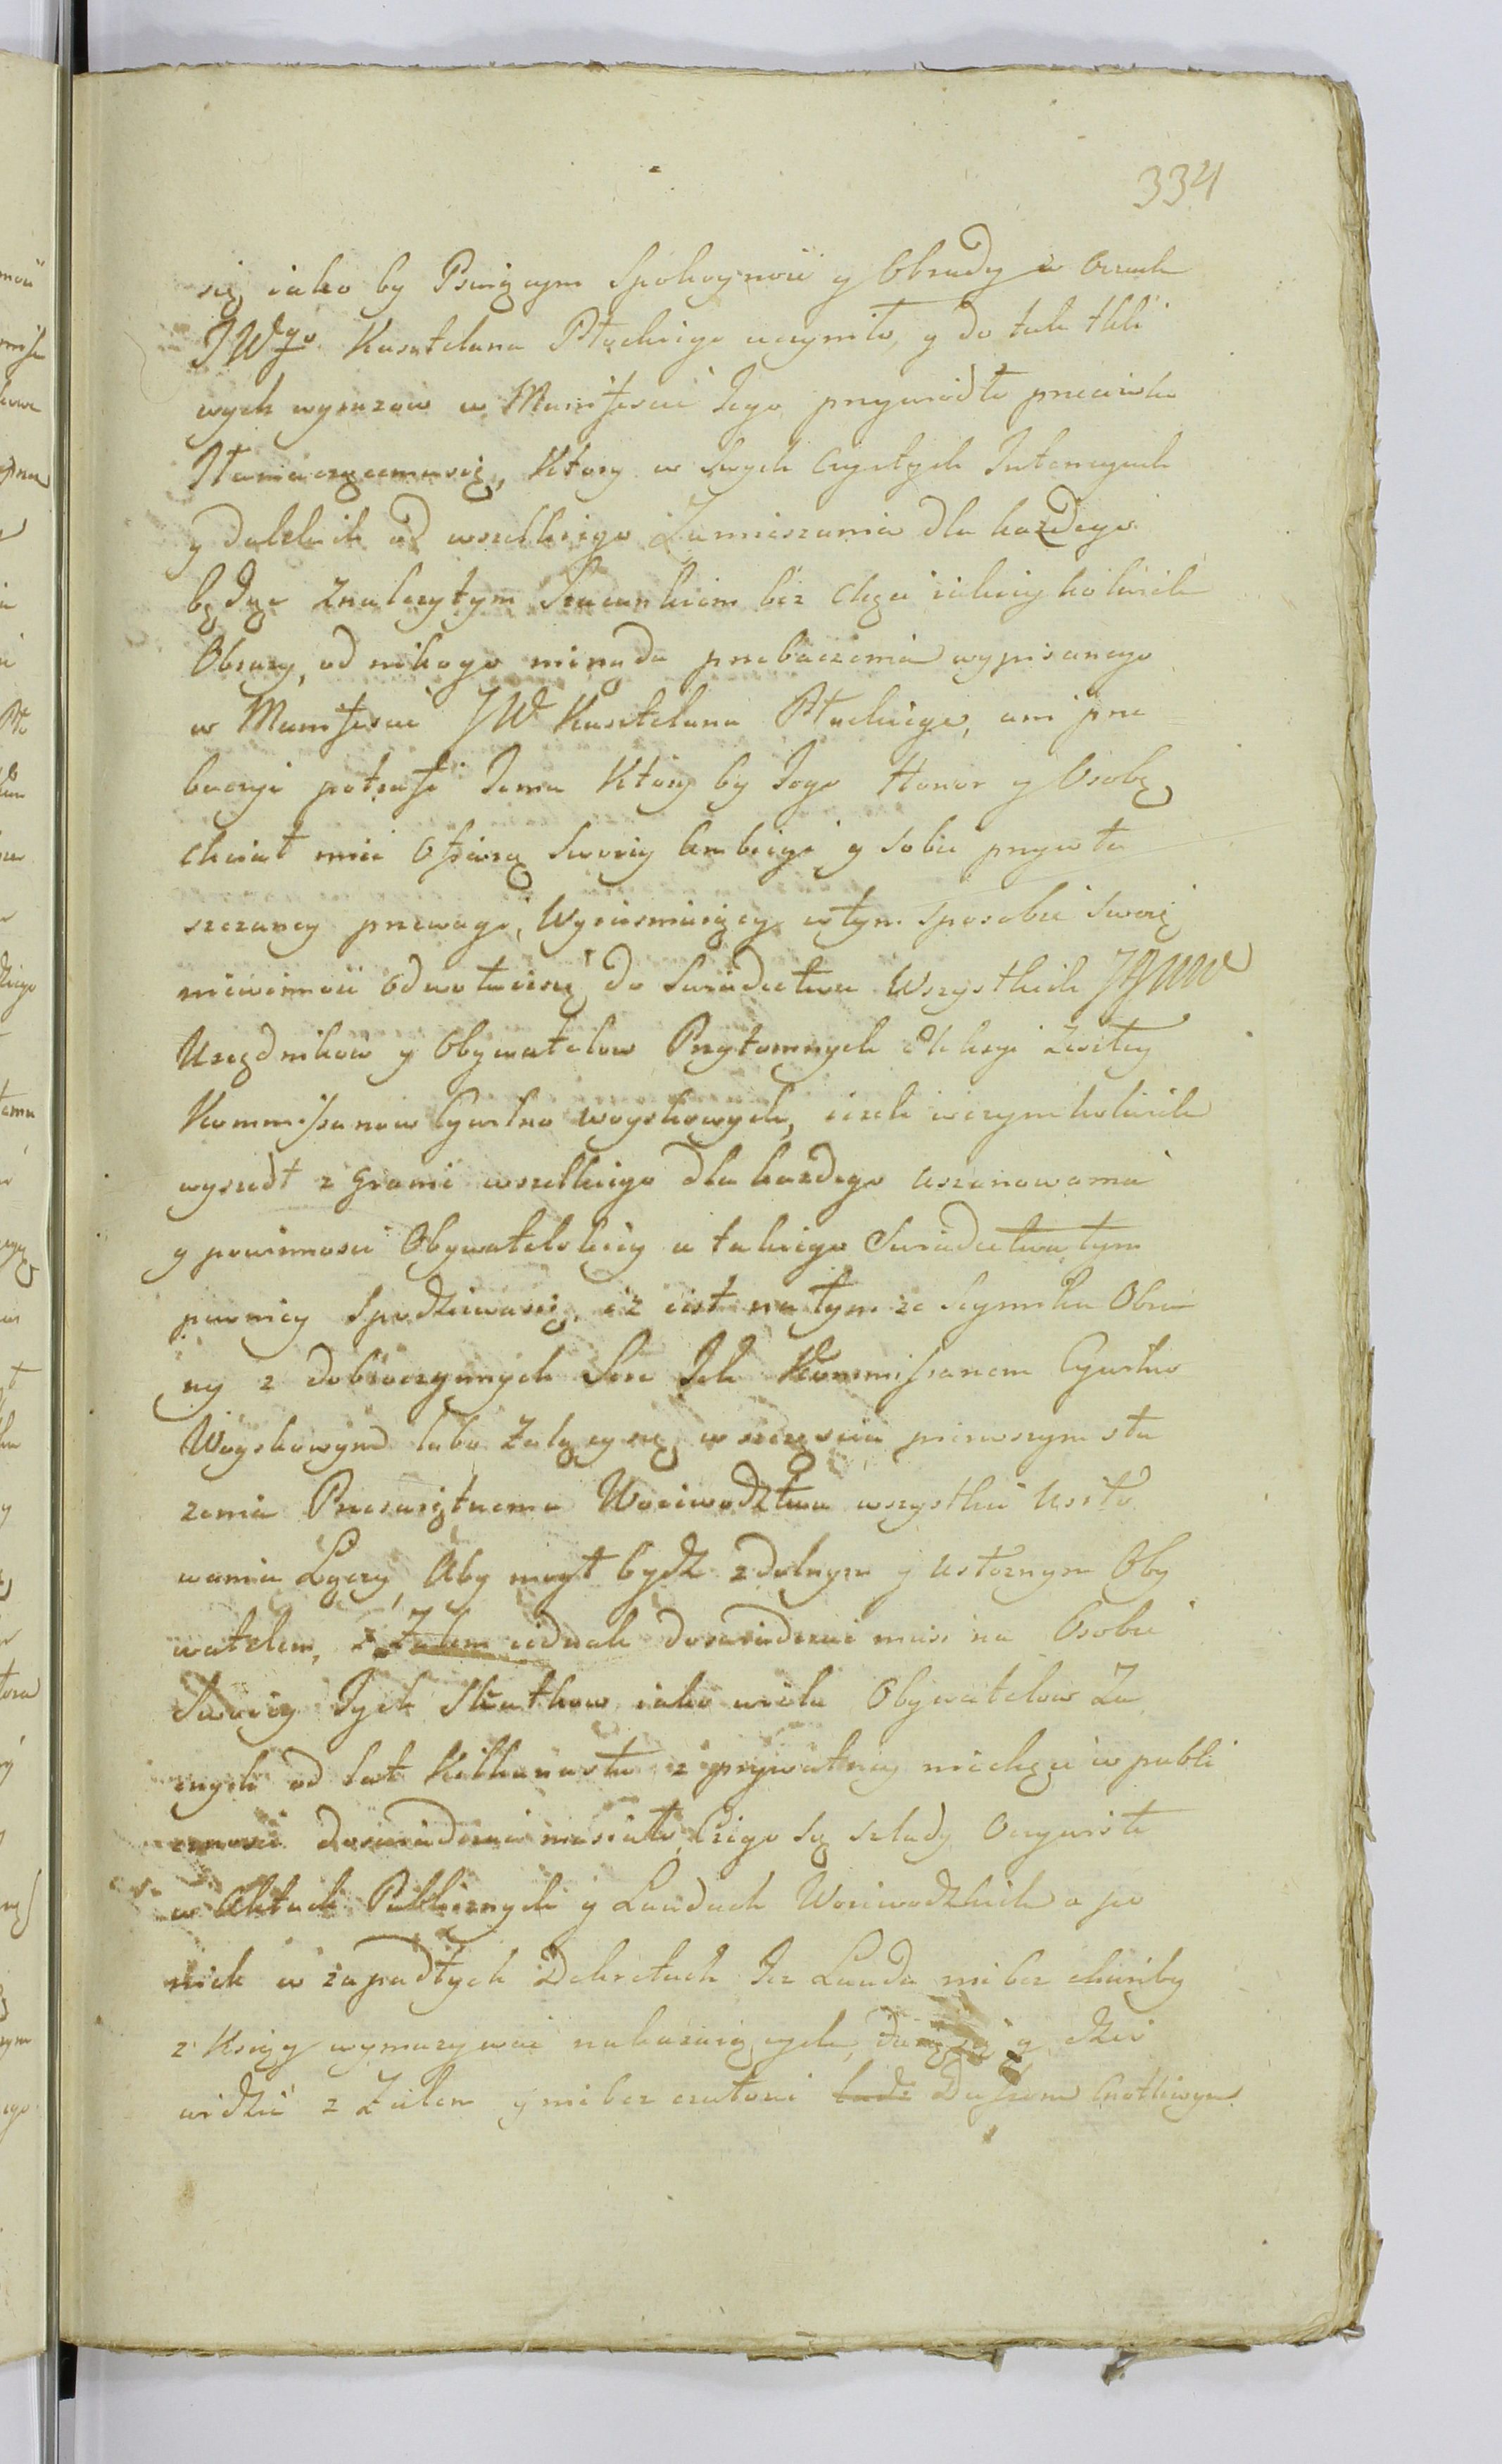 334
się iako by Psuiącym Spokoyność y Obrady w Oczach
JWgo Kasztelana Płockiego uczyniło, y do tak tkli
wych wyrazow w Manifescie Jego przywiodło przeciwko
Tłomaczącemu się, Ktory w swych Czystych Intencyach
y dalekich od wszelkiego Zamieszania dla każdego
będąc Znależytym Szacunkiem bez Chęci iakieykolwiek
Obrazy, od nikogo nieżąda przebaczenia wypisanego
w Manifescie JW Kasztelana Płockiego, ani prze
baczyć potrafi Temu Ktory by Jego Honor y Osobę
chciał mieć ofiarą Swoiey Ambicyi y sobie przywła
szczaney przewagi, Wyiasniaiący w tym sposobie Swoię
niewinność odwołuie się do Swiadectwa Wszystkich JJWW
Urzędnikow y Obywatelow Przytomnych Elekcyi Zeszłey
Kommissarzow Cywilno woyskowych, iezeli w czymkolwiek
wyszedł z granic wszelkiego dla każdego uszanowania
y powinnosci Obywatelskiey a takiego Swiadectwa tym
pewniey Spodziewa się, iż iest na tymże Seymiku Obra
ny z dobroczynnych Serc Ich Kommissarzem Cywilno
Woyskowym lubo Zalący się w szczęsciu pierwszym słu
zenia Przeswiętnemu Woiewodztwu wszystkie usiło
wania Łączy, Aby mogł bydź zdolnym y ustoznym Oby
watelem, z Zalem iednak doswiadczać musi na Osobie
Swoiey Tych Skutkow iako wielu Obywatelow Za
cnych od lat Kilkunastu z prywatney niechęci w publi
cznosci doswiadczać musiało, Czego są slady Oczywiste
w Aktach Publicznych y Laudach Woiewodzkich a po
nich w zapadłych Dekretach Też Lauda nie bez chańby
z Xsiąg wymazywać nakazuiących, y dziś
widzić z Zalem y nie bez czułosci Duszom Cnotliwym